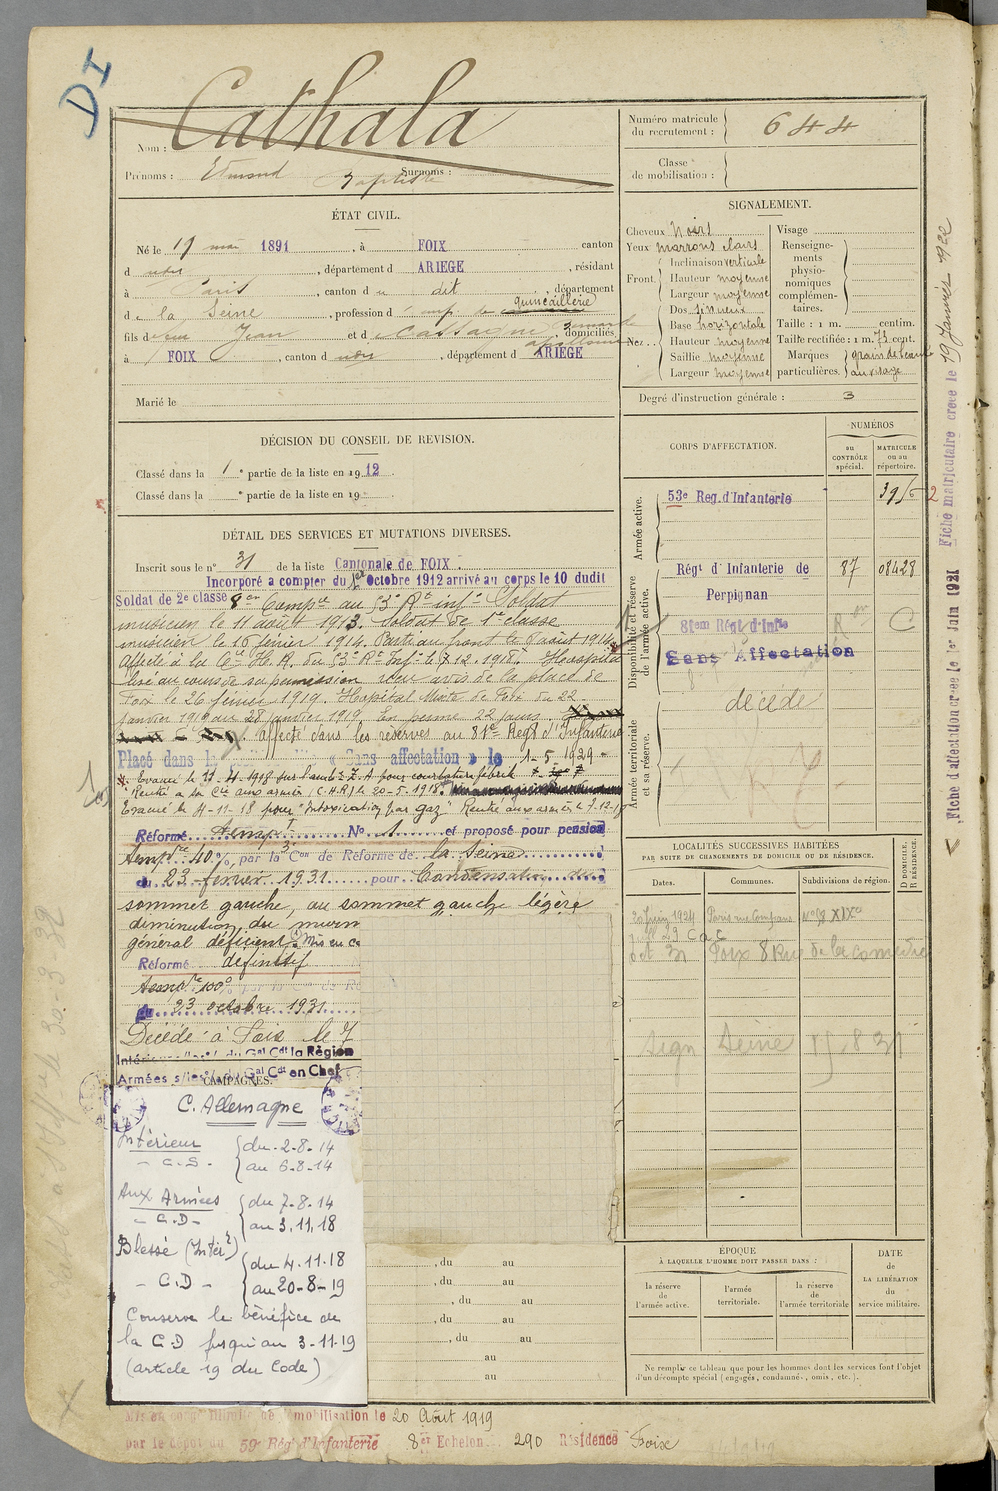 DI
Nom : Cathala
Prénoms : Edmond Baptiste Surnoms :
Numéro matricule du recrutement : 644
Classe de mobilisation :
ÉTAT CIVIL.
Né le 19 mai 1891, à FOIX canton
d udit, département d ARIEGE, résidant
à Paris, canton d u dit, département
d e la Seine, profession d' emp. de quincaillerie
fils d e feu Jean et d e Cassagne domiciliés
à FOIX, canton d udit, département d ARIEGE
Marié le
SIGNALEMENT.
Cheveux Noirs
Yeux marrons clairs
Front. Inclinaison verticale
Hauteur moyenne
Largeur moyenne
Nez. Dos sinueux
Base horizontale
Hauteur moyenne
Saillie moyenne
Largeur moyenne
Visage
Renseignements physionomiques complémentaires.
Taille : 1 m. centim.
Taille rectifiée : 1 m. 73 cent.
Marques particulières. grain de beauté au visage
Degré d'instruction générale : 3
DÉCISION DU CONSEIL DE REVISION.
Classé dans la 1e partie de la liste en 1912.
Classé dans la e partie de la liste en 19
DÉTAIL DES SERVICES ET MUTATIONS DIVERSES.
Inscrit sous le n° 31 de la liste Cantonale de FOIX.
Incorporé a compter du 1er Octobre 1912 arrivé au corps le 10 dudit
Soldat de 2e classe 8e Campie au 53e Rt infie Soldat
musicien le 11 août 1913. Soldat de 1e classe
musicien le 16 février 1914. Parti au front le 6 août 1914.
Affecté à la Cie H. R. du 53e Rt Infie le 7 12. 1918. Hospita
lisé au cours de sa permission avis de la place de
Foix le 26 février 1919. Hopital Mixte de Foix du 22
janvier 1919 au 28 janvier 1919. En perme 22 jours
Affecté dans les réserves au 81e Regt d'Infanterie
Placé dans la « Sans affectation » le 1-5-1929
Evacué le 11-4-1918 sur l'amb. pour courbature fébrile
Rentré a sa Cie aux armées (C.H.R) le 20-5-1918.
Evacué le 4-11-18 pour "intoxication par gaz" Rentré aux armées le 7-12-18
Réformé tempre No 1 et proposé pour pension
tempre 40 %, par la 3e Con de Réforme de la Seine
du 23 février 1931 pour Condensation du
sommet gauche, au sommet gauche légère
diminution du murm
général déficient. Mis en co
Réformé définitif
100%
du 23 octobre 1931
Décédé à Foix le 7
Intérieur du Gal Cdt la Région
Armées s/les o/ du Gal Cdt en Chef
CAMPAGNES.
C. Allemagne
Intérieur - C.S. - du 2-8-14 au 6-8-14
Aux Armées - C.D - du 7-8-14 au 3.11.18
Blessé (Intér) - C.D - du 4.11.18 au 20-8-19
Conserve le bénéfice de
la C.D jusqu'au 3-11-19
(article 19 du Code)
, du au
, du au
, du au
, du au
, du au
au
au
CORPS D'AFFECTATION.
NUMÉROS
au CONTRÔLE spécial.
MATRICULE ou au répertoire.
Armée active.
53e Reg. d'Infanterie
Disponibilité et réserve de l'armée active.
Régt d'Infanterie de Perpignan 87 08428
81em Régt d'Infie
Sans Affectation
Armée territoriale et sa réserve.
décédé
LOCALITÉS SUCCESSIVES HABITÉES
PAR SUITE DE CHANGEMENTS DE DOMICILE OU DE RÉSIDENCE.
Dates. Communes. Subdivisions de région. D DOMICILE. R RÉSIDENCE.
Oct 31 Foix 8 Rue de la comédie
Sign Seine
ÉPOQUE
À LAQUELLE L'HOMME DOIT PASSER DANS :
la réserve de l'armée active.
l'armée territoriale.
la réserve de l'armée territoriale
DATE DE LA LIBÉRATION du service militaire.
Ne remplir ce tableau que pour les hommes dont les services font l'objet
d'un décompte spécial (engagés, condamné., omis, etc.).
Mis en congé illimité de démobilisation le 20 Août 1919
par le dépôt du 59e Régt d'Infanterie 8er Echelon 290 Résidence Foix
Fiche matriculaire créée le 19 Janvier 1922
Fiche d'affectation créée le 1er Juin 1921